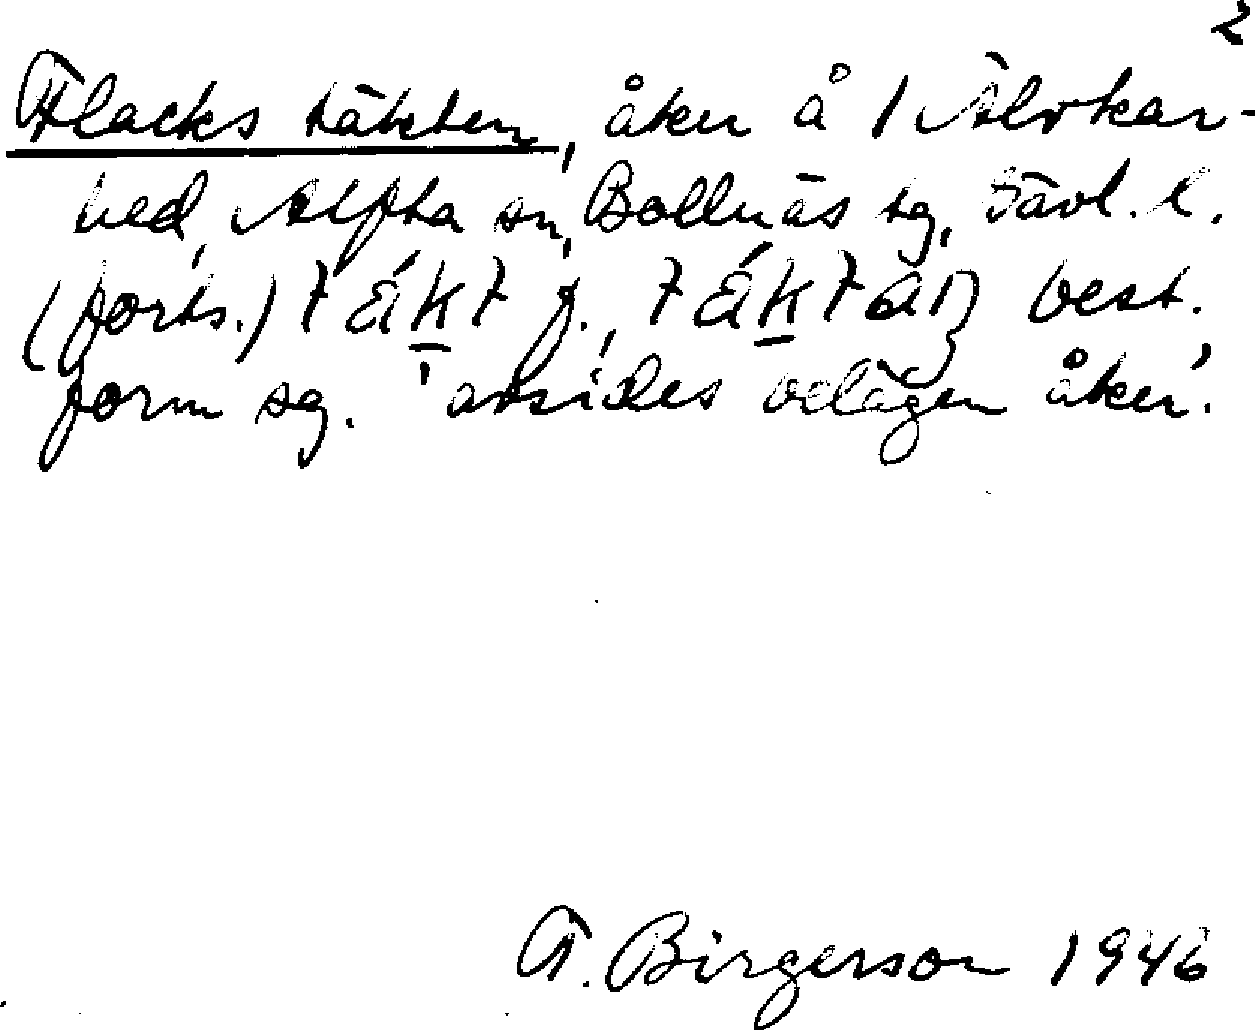 2
Flacks täkten, åker å 1 Älvkar-
hed, Alfta sn, Bollnäs tg, Gävl. l.
(forts.) tákt f., táktan best.
form sg. 'avsides belägen åker'.
F. Birgerson 1946